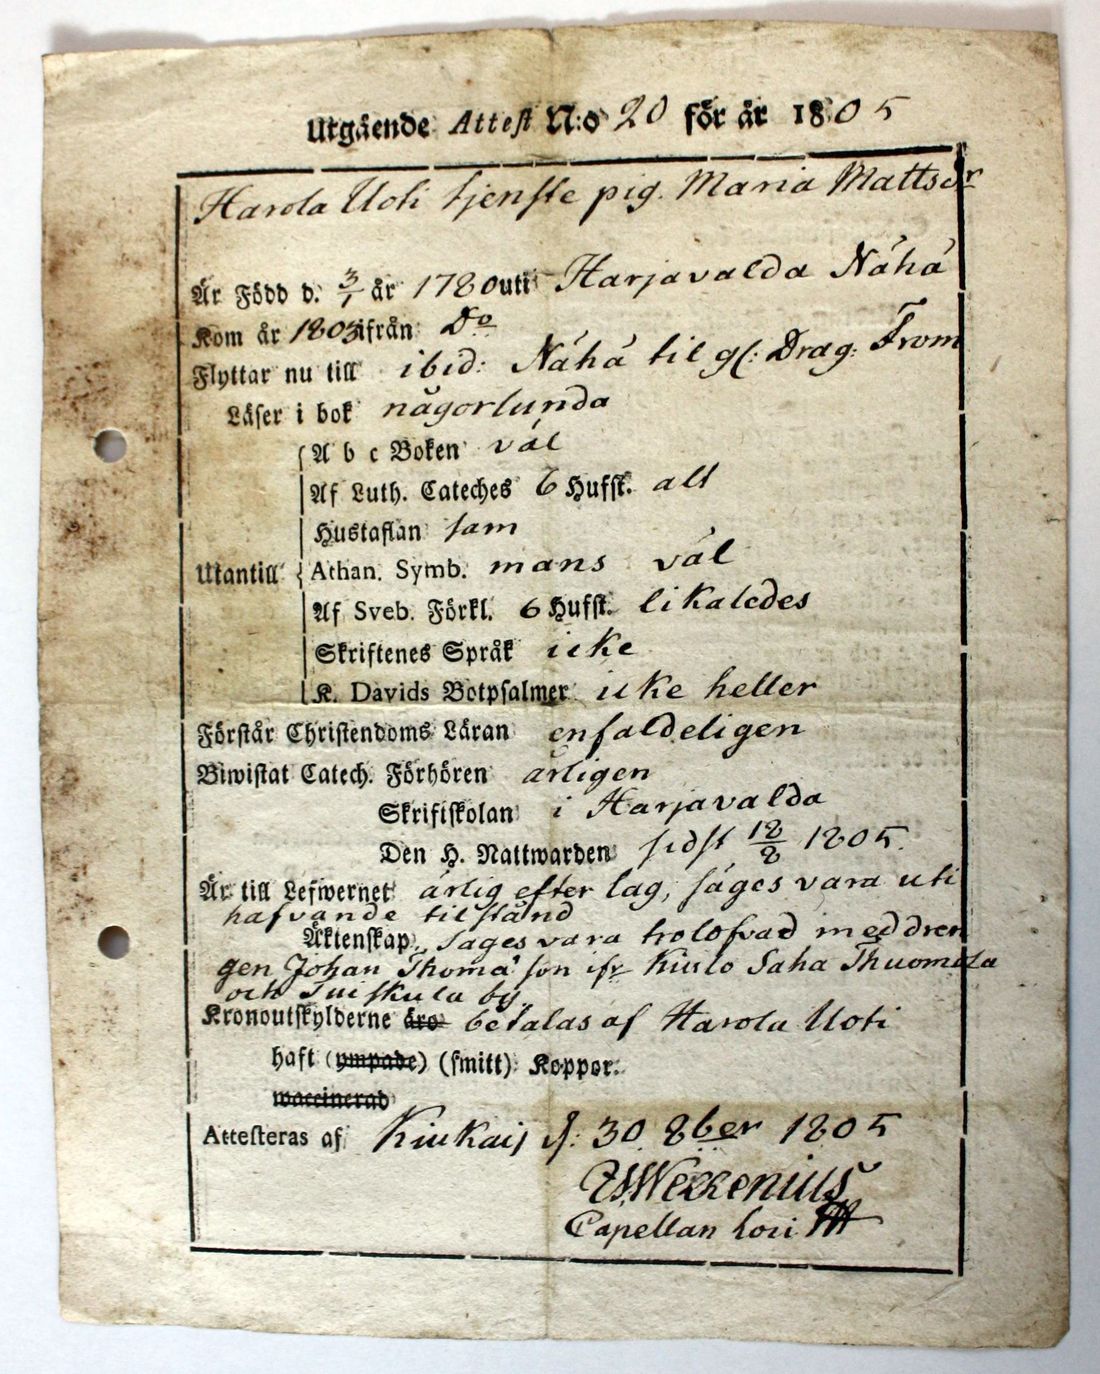 Utgående Attest N:o 20 för år 1805
Harola Uoti tjenste pig. Maria Mattsdr
Är Född d. 3/1 år 1780 uti Harjavalda Nähä
Kom år 1803 ifrån Do
Flyttar nu till ibid: Nähä til gl: Drag: From
Läser i bok någorlunda
A b c Boken väl
Af Luth. Cateches 6 Hufst. alt
Hustaflan sam
Utantill Athan. Symb. mans väl
Af Sveb. Förkl. 6 Hufst. likaledes
Skriftenes Språk icke
K. Davids Botpsalmer icke heller
Förstår Christendoms Läran enfaldeligen
Biwistat Catech. Förhören årligen
Skriftskolan i Harjavalda
Den H. Nattwarden sidst 18/8 1805.
Är till Lefwernet ärlig efter lag, säges vara uti
hafvande tilstånd
Äktenskap, säges vara trolofvad med dren
gen Johan Thomas son ifr Kiulo Saha Thuomola
och Tuiskula by.
Kronoutskylderne äro betalas af Harola Uoti
haft (ympade) (smitt) Koppor.
waccinerad
Attesteras af Kiukais d: 30 8ber 1805
Weckenius
Capellan loci